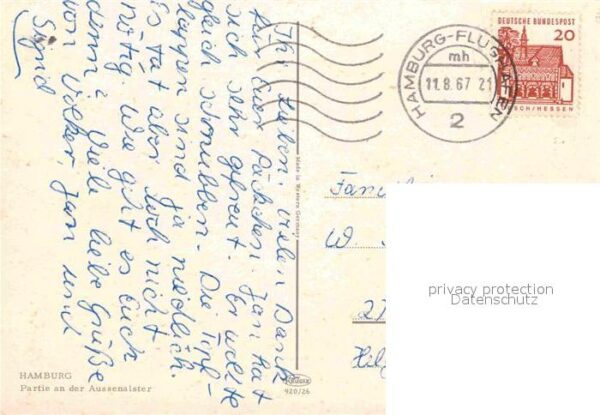 Ihr Lieben, vielen Dank
für Euer Päckchen. Jan hat
sich sehr gefreut. Er wollte
gleich schreiben. Die Topf-
lappen sind ja niedlich.
Es tat aber doch nicht
nötig. Wie geht es Euch
denn? Viele liebe Grüße
von Volker, Jan und
Sigrid
DEUTSCHE BUNDESPOST
20
LORSCH/HESSEN
HAMBURG-FLUGHAFEN
mh
11.8.67 21
2
Made in Western Germany
Familie
W.
privacy protection
Datenschutz
HAMBURG
Partie an der Aussenalster
KRÜGER
920/26